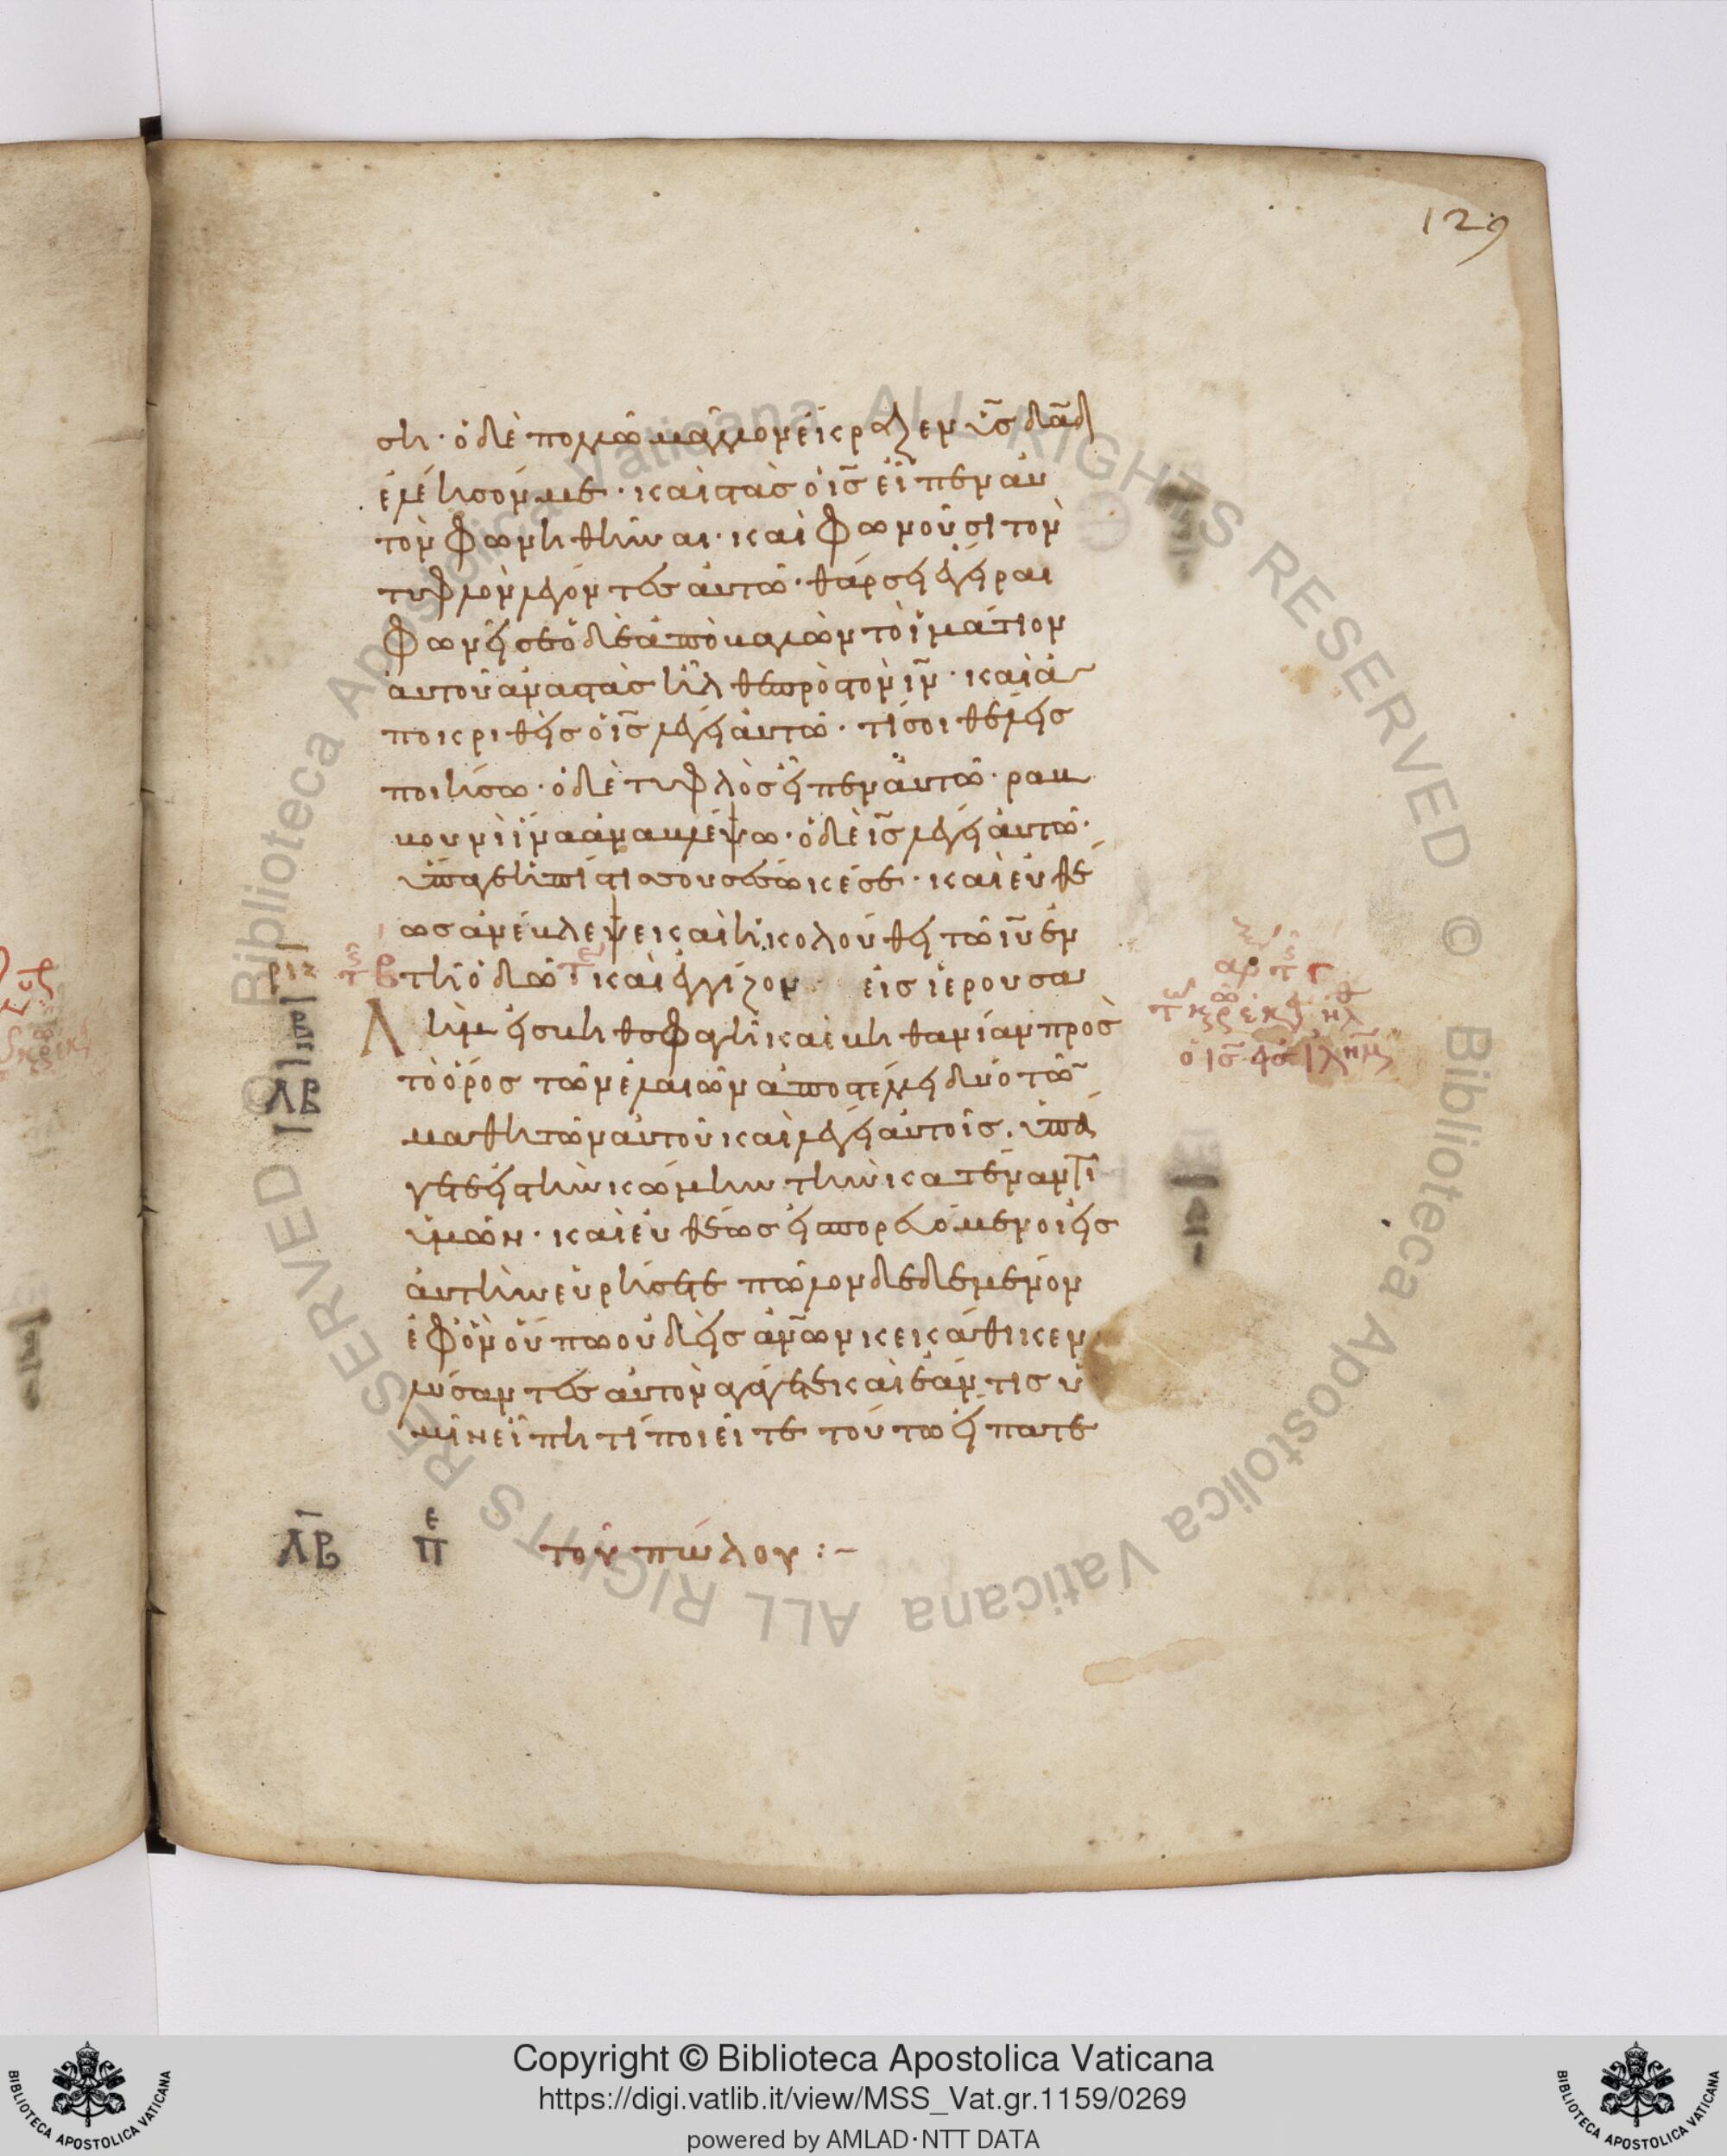 129
ση· ὁ δὲ πολλῶ μᾶλλον ἔκραζεν ὑ͞ς δα͞δ
ἐλέησόν με· καὶ στὰς ὁ ι͞ς εἶπεν αὐ
τὸν φωνηθῆναι· καὶ φωνοῦσι τὸν
τυφλὸν λέγοντες αὐτῶ· θάρσει ἔγειραι
φωνεῖ σε ὁ δὲ ἀποβαλὼν τὸ ἱμάτιον
αὐτοῦ ἀναστὰς ἦλθε πρὸς τὸν ι͞ν· καὶ ἀ
ποκριθεὶς ὁ ι͞ς λέγει αὐτῶ· τί σοι θέλεις
ποιήσω· ὁ δὲ τυφλὸς εἶπεν αὐτῶ· ραβ
βουνὶ ἵνα ἀναβλέψω· ὁ δὲ ι͞ς λέγει αὐτῶ·
ὕπαγε ἡ πίστις σου σέσωκέ σε· καὶ εὐθέ
ως ἀνέβλεψε καὶ ἠκολούθει τῶ ι͞υ ἐν
τῆ ὁδῶ καὶ ἐγγίζον εἰς ἱερουσα
λὴμ εἰς βηθσφαγῆ καὶ βηθανίαν πρὸς
τὸ ὄρος τῶν ἐλαιῶν ἀποστέλλει δύο τῶ
μαθητῶν αὐτοῦ καὶ λέγει αὐτοῖς. ὑπά
γετε εἰς τὴν κώμην τὴν κατέναντι
ὑμῶν· καὶ εὐθέως εἰσπορευόμενοι εἰς
αὐτὴν εὑρήσετε πῶλον δεδεμένον
ἐφ ὃν οὔπω οὐδεὶς αν͞ων κεκάθικεν
λύσαντες αὐτὸν ἀγάγετε καὶ ἐάν τις ὑ
μῖν εἴπη τί ποιεῖτε τούτω εἴπατε
ΛΒ
Λ͞Β πε τοῦ πώλου :-
Copyright © Biblioteca Apostolica Vaticana
https://digi.vatlib.it/view/MSS_Vat.gr.1159/0269
powered by AMLAD·NTT DATA
BIBLIOTECA APOSTOLICA VATICANA
BIBLIOTECA APOSTOLICA VATICANA
Biblioteca Apostolica Vaticana ALL RIGHTS RESERVED © Biblioteca Apostolica Vaticana ALL RIGHTS RESERVED ©